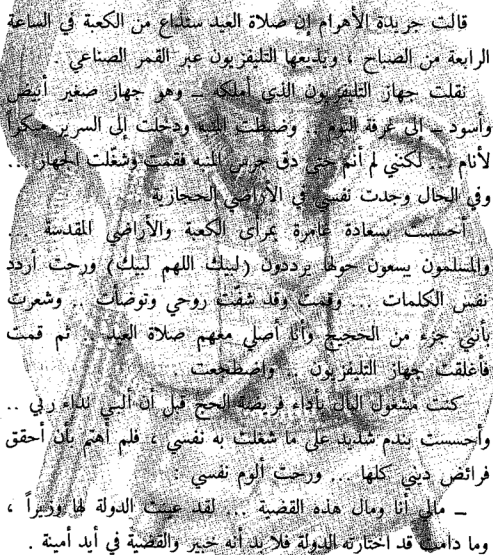 قالت جريدة الأهرام إن صلاة العيد ستذاع من الكعبة في الساعة
الرابعة من الصباح ، ويذيعها التليفزيون عبر القمر الصناعي .
نقلت جهاز التليفزيون الذي أملكه ــ وهو جهاز صغير أبيض
وأسود ــ الى غرفة النوم .. وضبطت المنبه ودخلت إلى السرير مبكراً
لأنام ... لكنني لم أنم حتى دق جرس المنبه فقمت وشغّلت الجهاز ...
وفي الحال وجدت نفسي في الأراضي الحجازية
أحسست بسعادة غامرة بمرأى الكعبة والأراضي المقدسة ...
والمسلمون يسعون حولها يرددون (لبيك اللهم لبيك) ورحت أردد
نفس الكلمات ... وقمت وقد شفّت روحي وتوضأت .. وشعرت
بأنني جزء من الحجيج وأنا أصلي معهم صلاة العيد .. ثم قمت
فأغلقت جهاز التليفزيون .. واضطجعت .
كنت مشغول البال بأداء فريضة الحج قبل أن ألبي نداء ربي ..
وأحسست بندم شديد على ما شغلت به نفسي ، فلم أهتم بأن أحقق
فرائض ديني كلها ... ورحت ألوم نفسي :
ــ مالي أنا ومال هذه القضية ... لقد عينت الدولة لها وزيراً ،
وما دامت قد اختارته الدولة فلا بد أنه خبير والقضية في أيد أمينة .